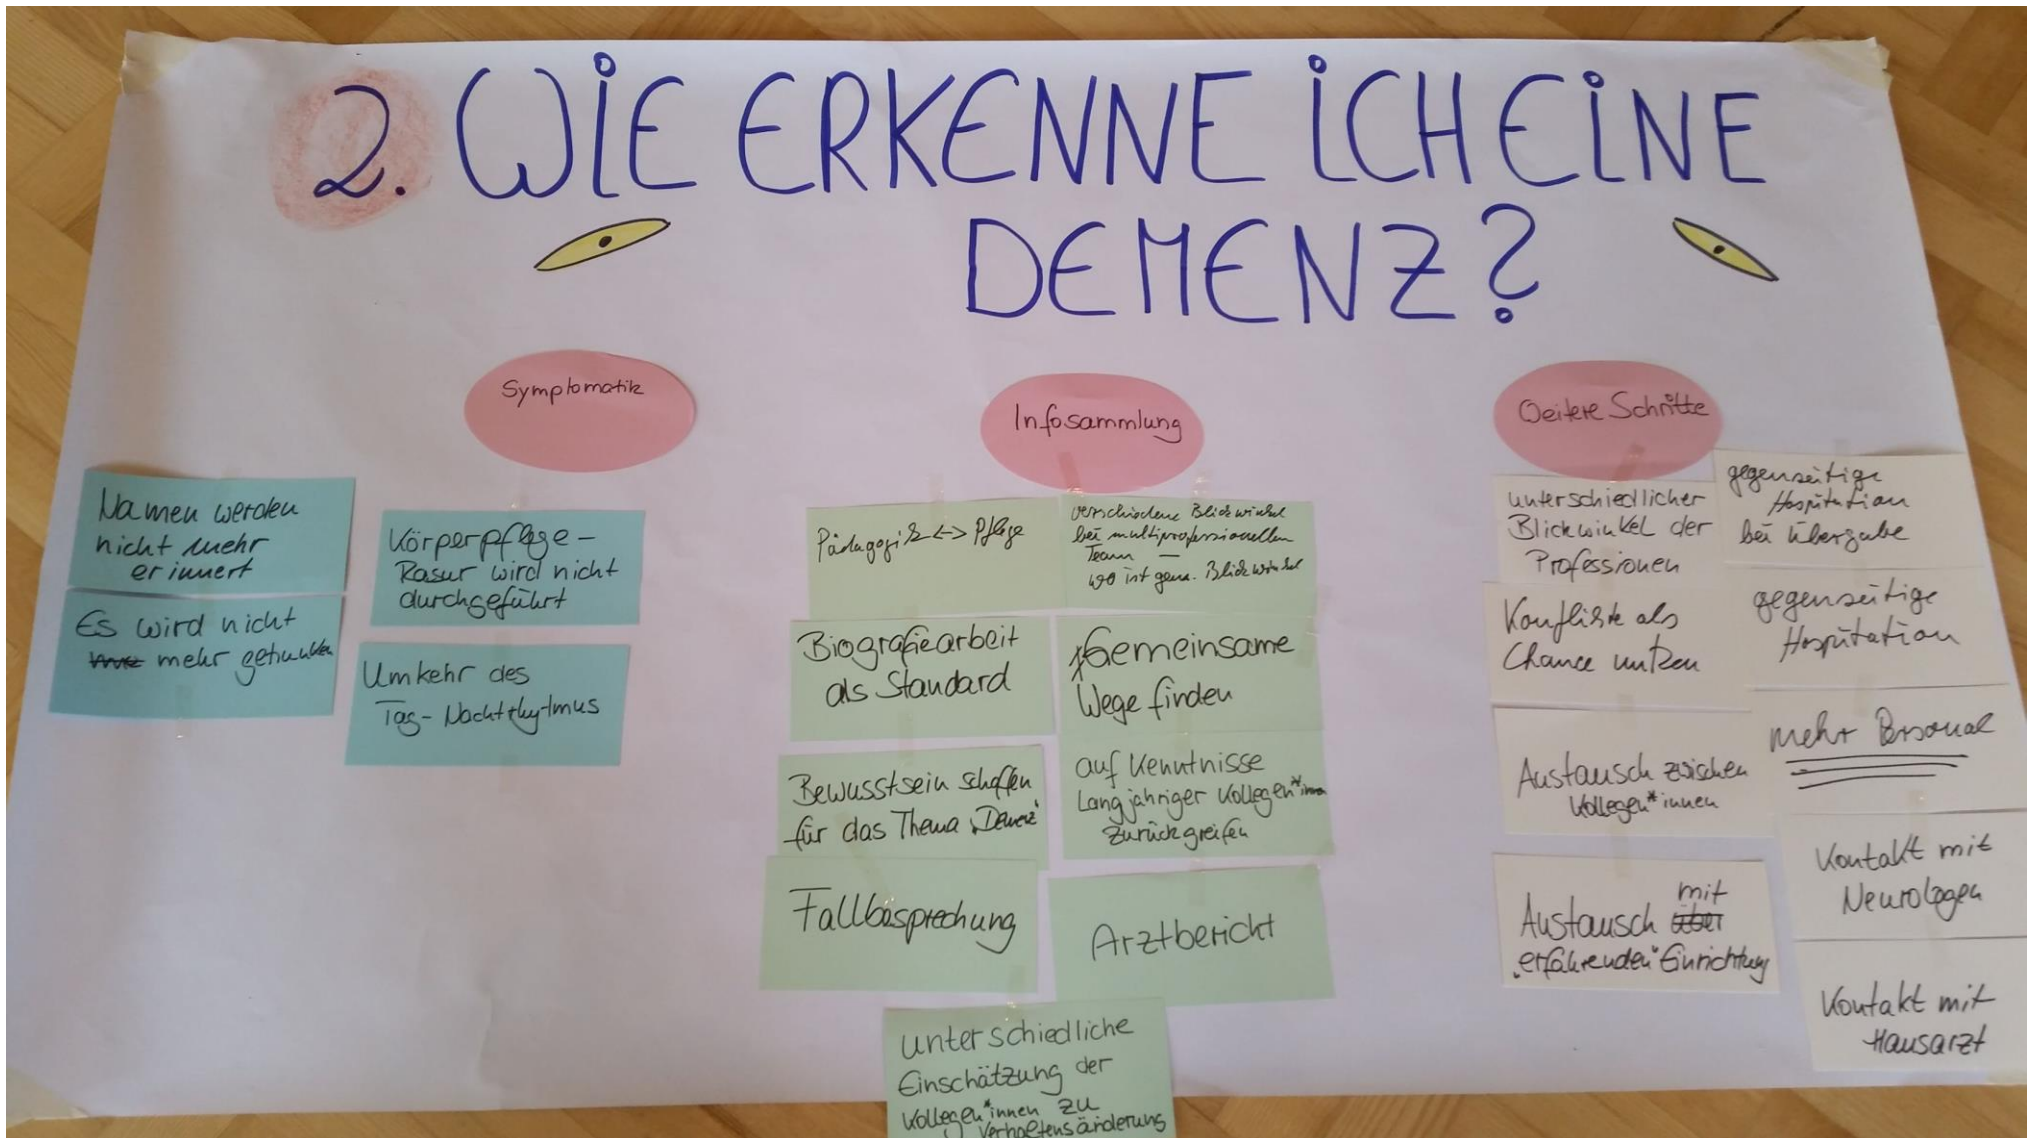 2. WIE ERKENNE ICH EINE
DEMENZ?
Symptomatik
Namen werden
nicht mehr
erinnert
Es wird nicht
mehr getrunken
Körperpflege –
Rasur wird nicht
durchgeführt
Umkehr des
Tag- Nachtrhytmus
Infosammlung
Pädagogik <-> Pflege
verschiedene Blickwinkel
bei multiprofessionellen
Team —
wo ist gem. Blickwinkel
Biografiearbeit
als Standard
Gemeinsame
Wege finden
Bewusstsein schaffen
für das Thema „Demenz"
auf Kenntnisse
Langjähriger Kollegen*innen
zurückgreifen
Fallbesprechung
Arztbericht
unterschiedliche
Einschätzung der
Kollegen*innen zu
Verhaltensänderung
Weitere Schritte
unterschiedlicher
Blickwinkel der
Professionen
gegenseitige
Hospitation
bei Übergabe
Konflikte als
Chance nutzen
gegenseitige
Hospitation
Austausch zwischen
Kollegen*innen
mehr Personal
Austausch mit
„erfahrenden" Einrichtung
Kontakt mit
Neurologen
Kontakt mit
Hausarzt